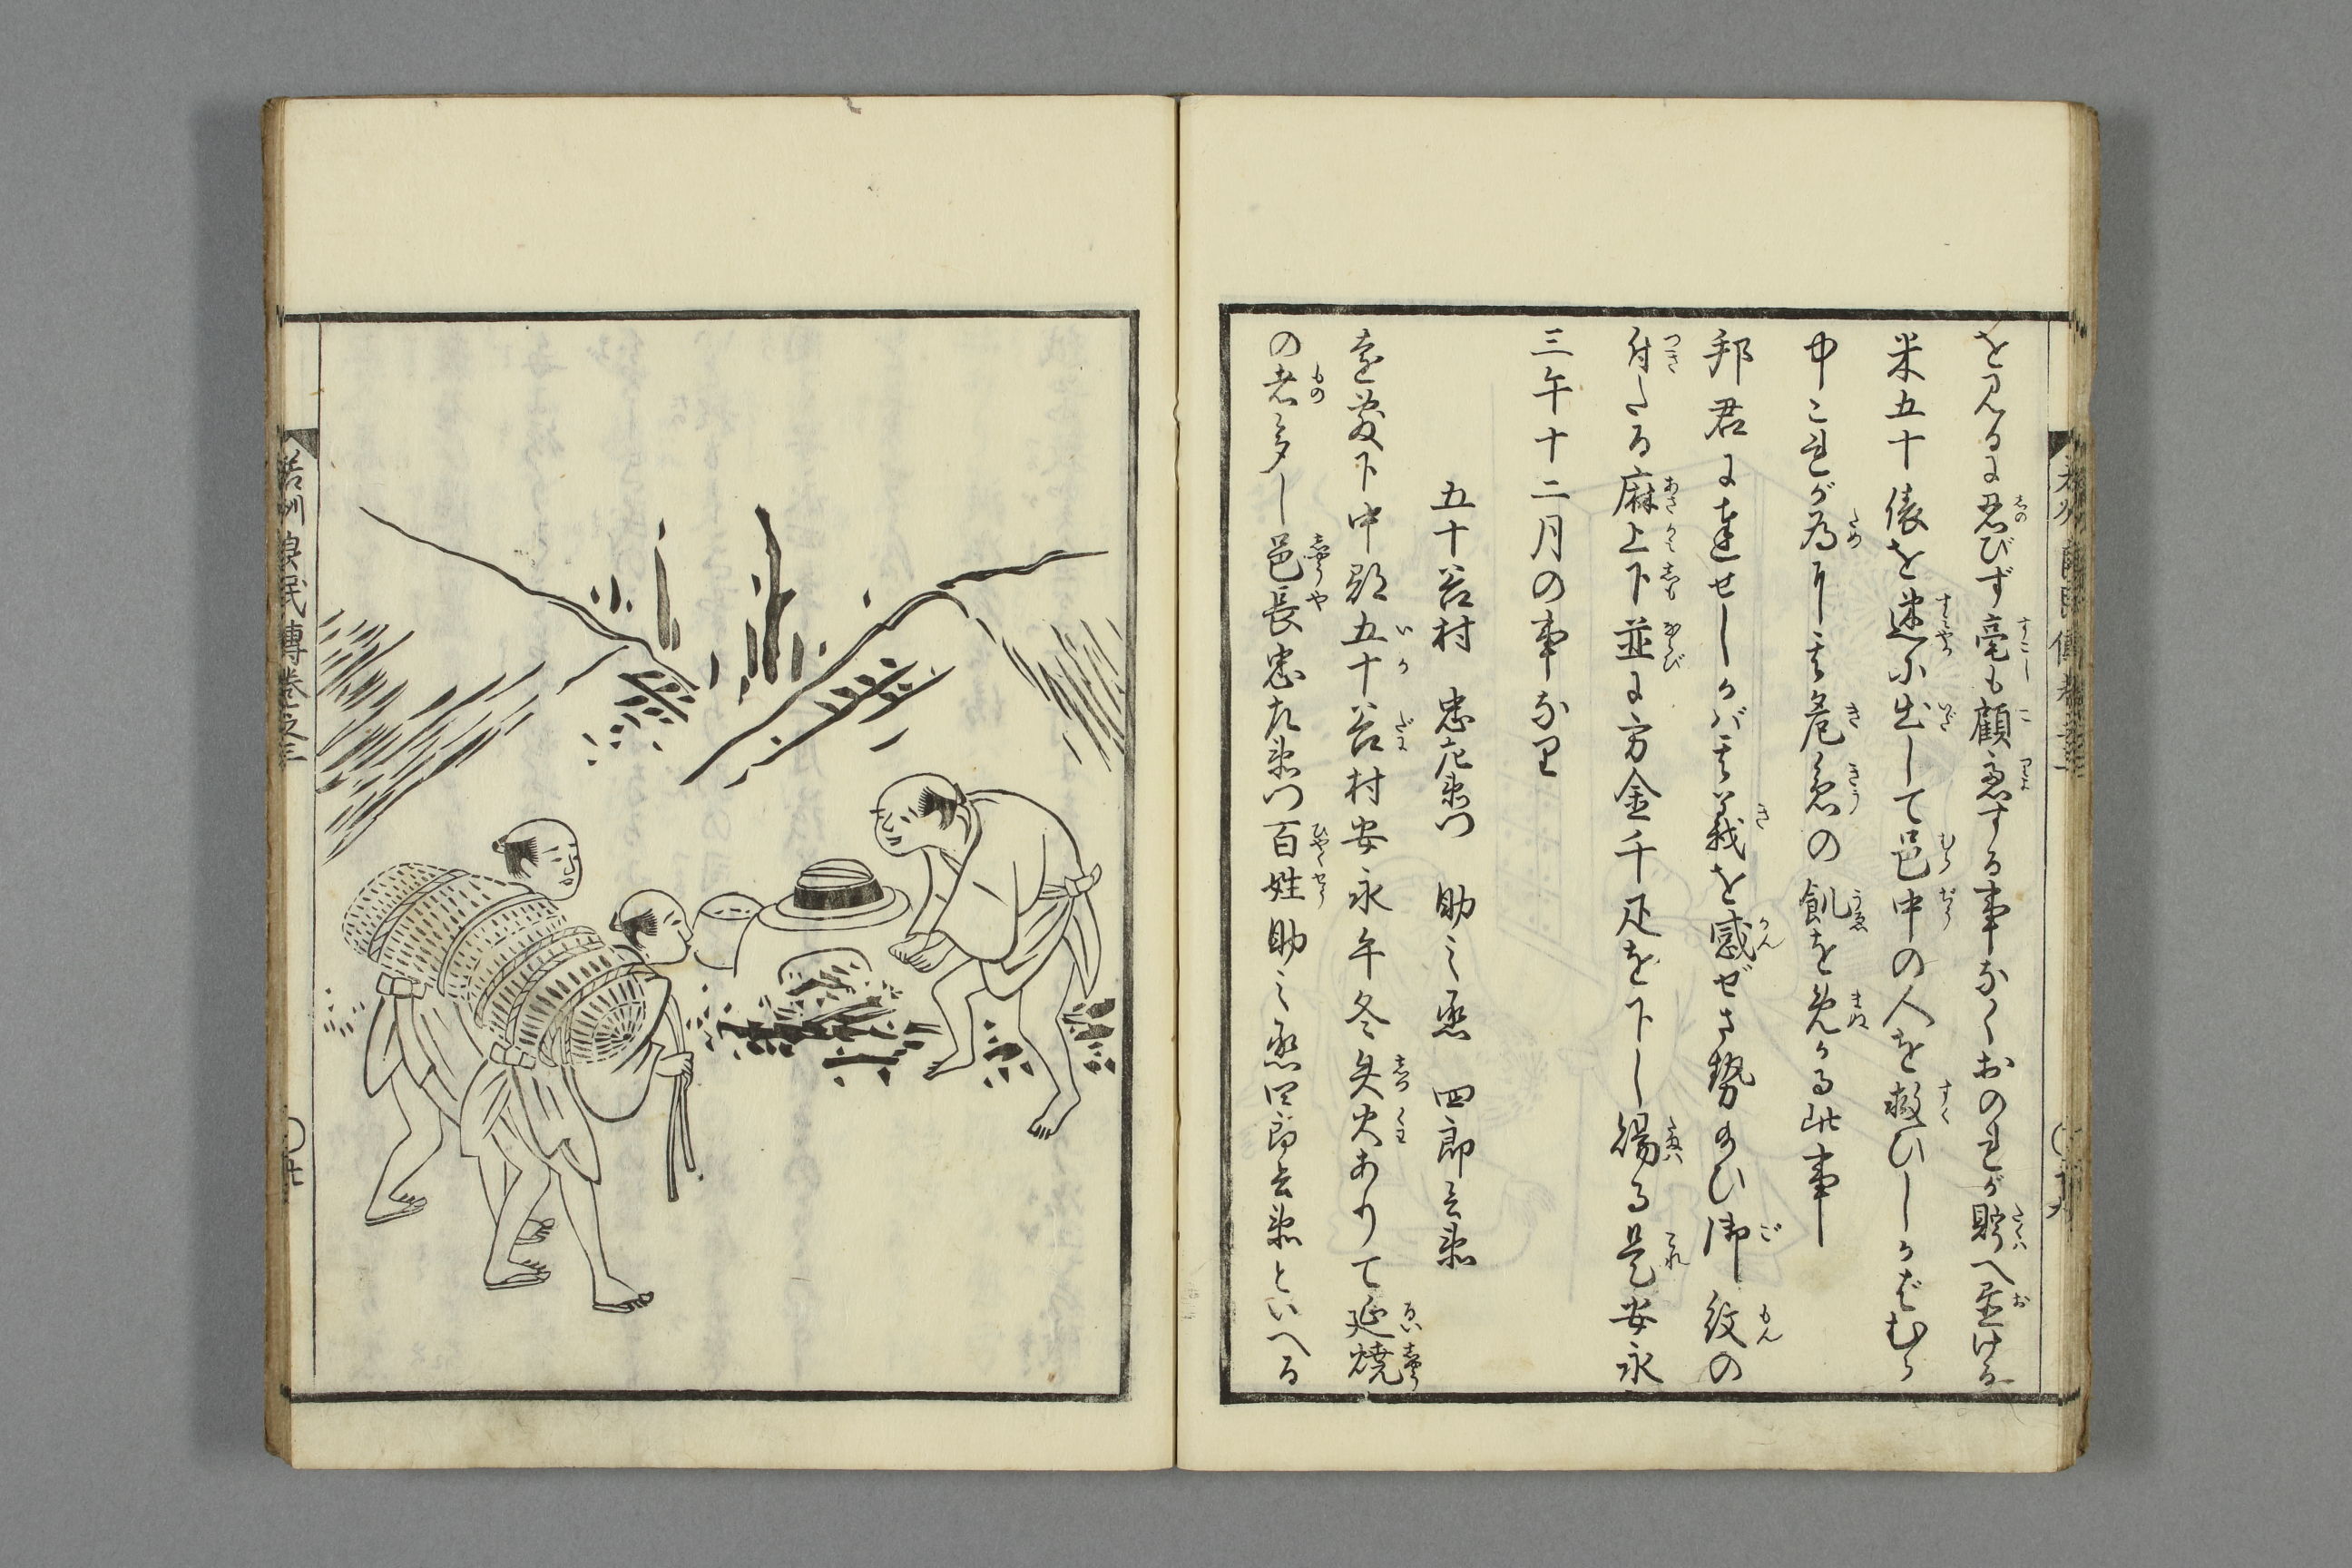 を見るに忍びず毫も顧慮する事なくおのれが貯へ置ける
米五十俵を速に出して邑中の人を救ひしかばむら
中これが為に其危急の飢を免かる此事
邦君に達せしかば其義を感ぜさ勢給ひ御紋の
付たる麻上下並に方金千疋を下し賜る是安永
三午十二月の事なり
五十谷村 忠左衛門 助之丞 四郎兵衛
遠敷下中郡五十谷村安永午冬失火ありて延焼
の者多し邑長忠左衛門百姓助之丞四郎兵衛といへる
若州良民傳卷之三